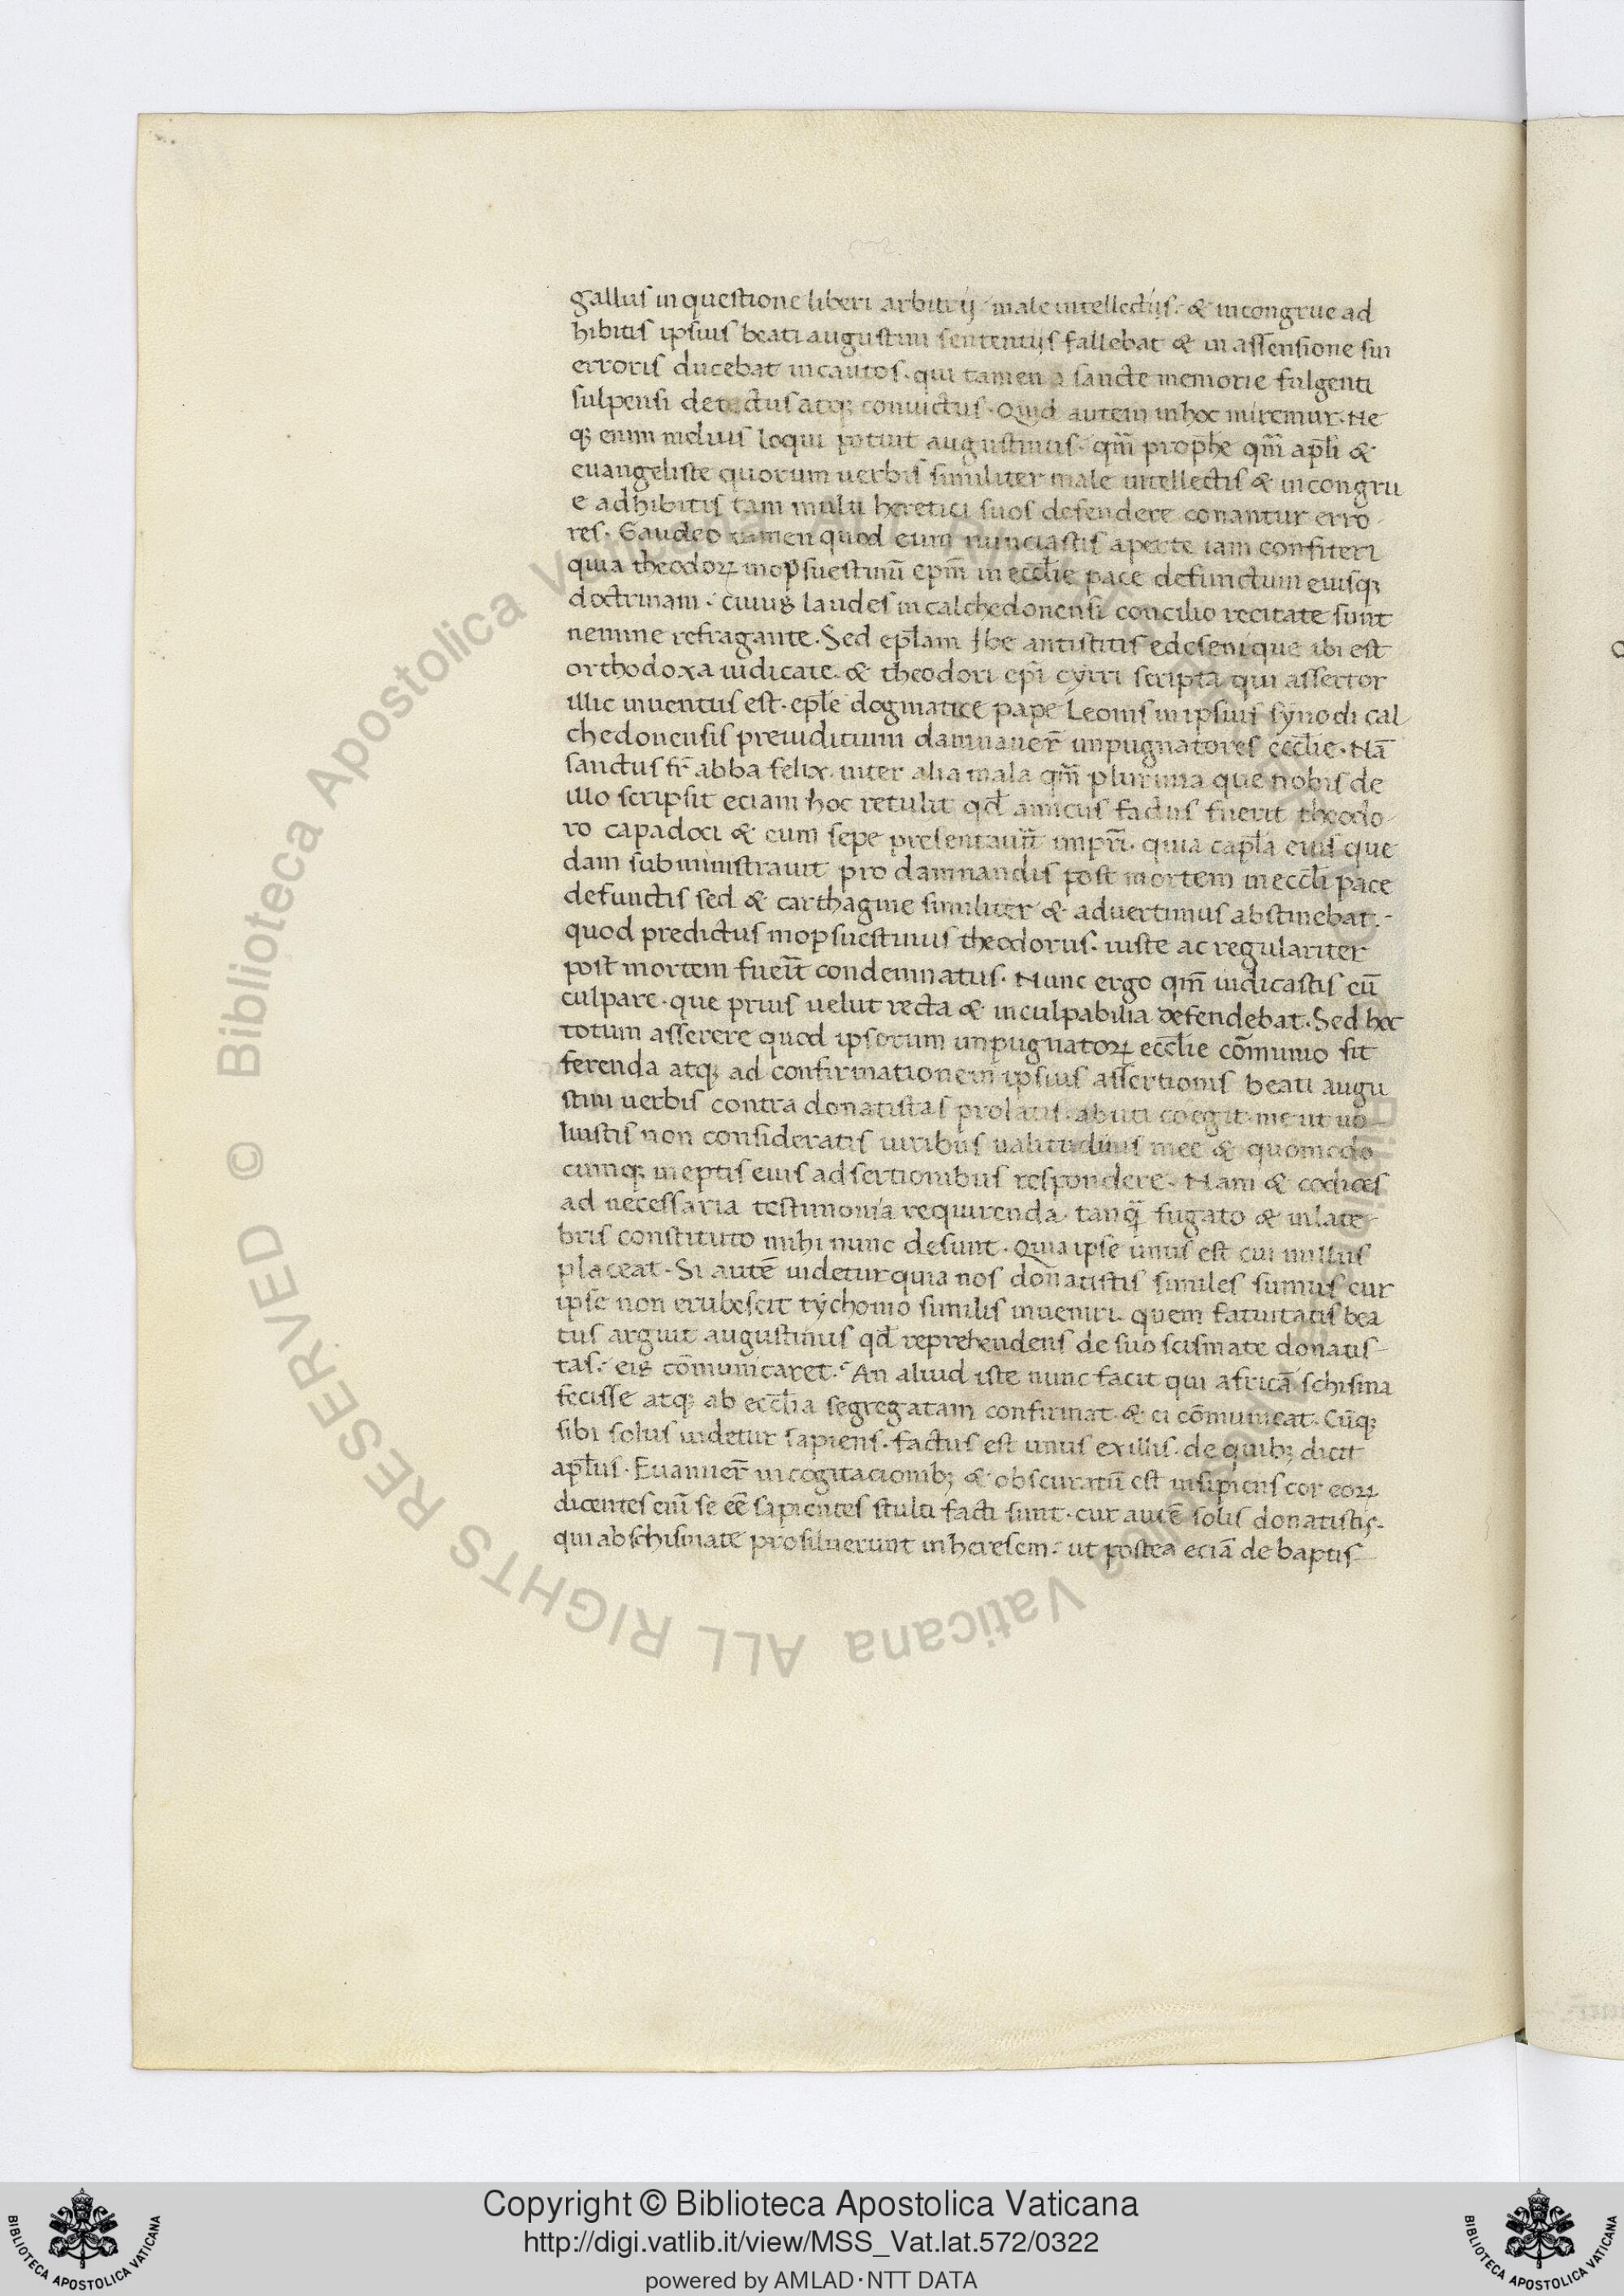 gallus in questione liberi arbitrij male intellectis · & incongrue ad
hibitis ipsius beati augustini sententijs fallebat & in assensione sui
erroris ducebat incautos · qui tamen a sancte memorie fulgenti
sulpensi detectus atq; conuictus · Quid autem in hoc miremur · Ne
q; enim melius loqui potuit augustinus · qm̄ prophe qm̄ apl̄i &
euangeliste quorum uerbis similiter male intellectis & incongru
e adhibitis tam multi heretici suos defendere conantur erro
res · Gaudeo tamen quod eum nunciastis aperte iam confiteri
quia theodoꝝ mopsuestinū epm̄ in eccl̄ie pace defunctum eiusq;
doctrinam · cuius laudes in calchedonensi concilio recitate sunt
nemine refragante · Sed epl̄am Ibe antistitis edeseni que ibi est
orthodoxa iudicate · & theodori epī cyrri scripta qui assertor
illic inuentus est · epl̄e dogmatice pape Leonis in ipsius synodi cal
chedonensis preiuditium damnauer̄ inpugnatores eccl̄ie · Nā
sanctus fr̄ abba felix · inter alia mala qm̄ plurima que nobis de
illo scripsit eciam hoc retulit qd̄ amicus factus fuerit theodo
ro capadoci & eum sepe presentauit̄ impr̄i · quia capl̄a eius que
dam subministrauit pro damnandis post mortem in eccl̄i pace
defunctis sed & carthagine similiter & aduertimus abstinebat ·
quod predictus mopsuestinus theodorus · iuste ac regulariter
post mortem fuerit̄ condemnatus · Nunc ergo qm̄ iudicastis eū
culpare · que prius uelut recta & inculpabilia defendebat · Sed hoc
totum asserere quod ipsorum inpugnatoꝝ eccl̄ie cōmunio sit
ferenda atq; ad confirmationem ipsius assertionis beati augu
stini uerbis contra donatistas prolatis · abuti coegit · me ut uo
luistis non consideratis uiribus ualitudinis mee & quomodo
cumq; ineptis eius adsertionibus respondere · Nam & codices
ad necessaria testimonia requirenda · tanq̄ fugato & in late
bris constituto mihi nunc desunt · Quia ipse unus est cui nullus
placeat · Si autē uidetur quia nos donatistis similes sumus cur
ipse non erubescit tychonio similis inueniri · quem fatuitatis bea
tus arguit augustinus qd̄ reprehendens de suo scismate donatis
tas · eis cōmunicaret · An aliud iste nunc facit qui africā schisma
fecisse atq; ab eccl̄ia segregatam confirmat · & ei cōmunicat · Cūq;
sibi solus uidetur sapiens · factus est unus ex illis · de quib; dicit
apl̄us · Euanuer̄ in cogitacionib; & obscuratū est insipiens cor eoꝝ
dicentes eni̅ se eē sapientes stulti facti sunt · cur autē solis donatistis
qui ab schismate prosiluerunt in heresem · ut postea eciā de baptis
Copyright © Biblioteca Apostolica Vaticana
http://digi.vatlib.it/view/MSS_Vat.lat.572/0322
powered by AMLAD·NTT DATA
BIBLIOTECA APOSTOLICA VATICANA
BIBLIOTECA APOSTOLICA VATICANA
© Biblioteca Apostolica Vaticana ALL RIGHTS RESERVED